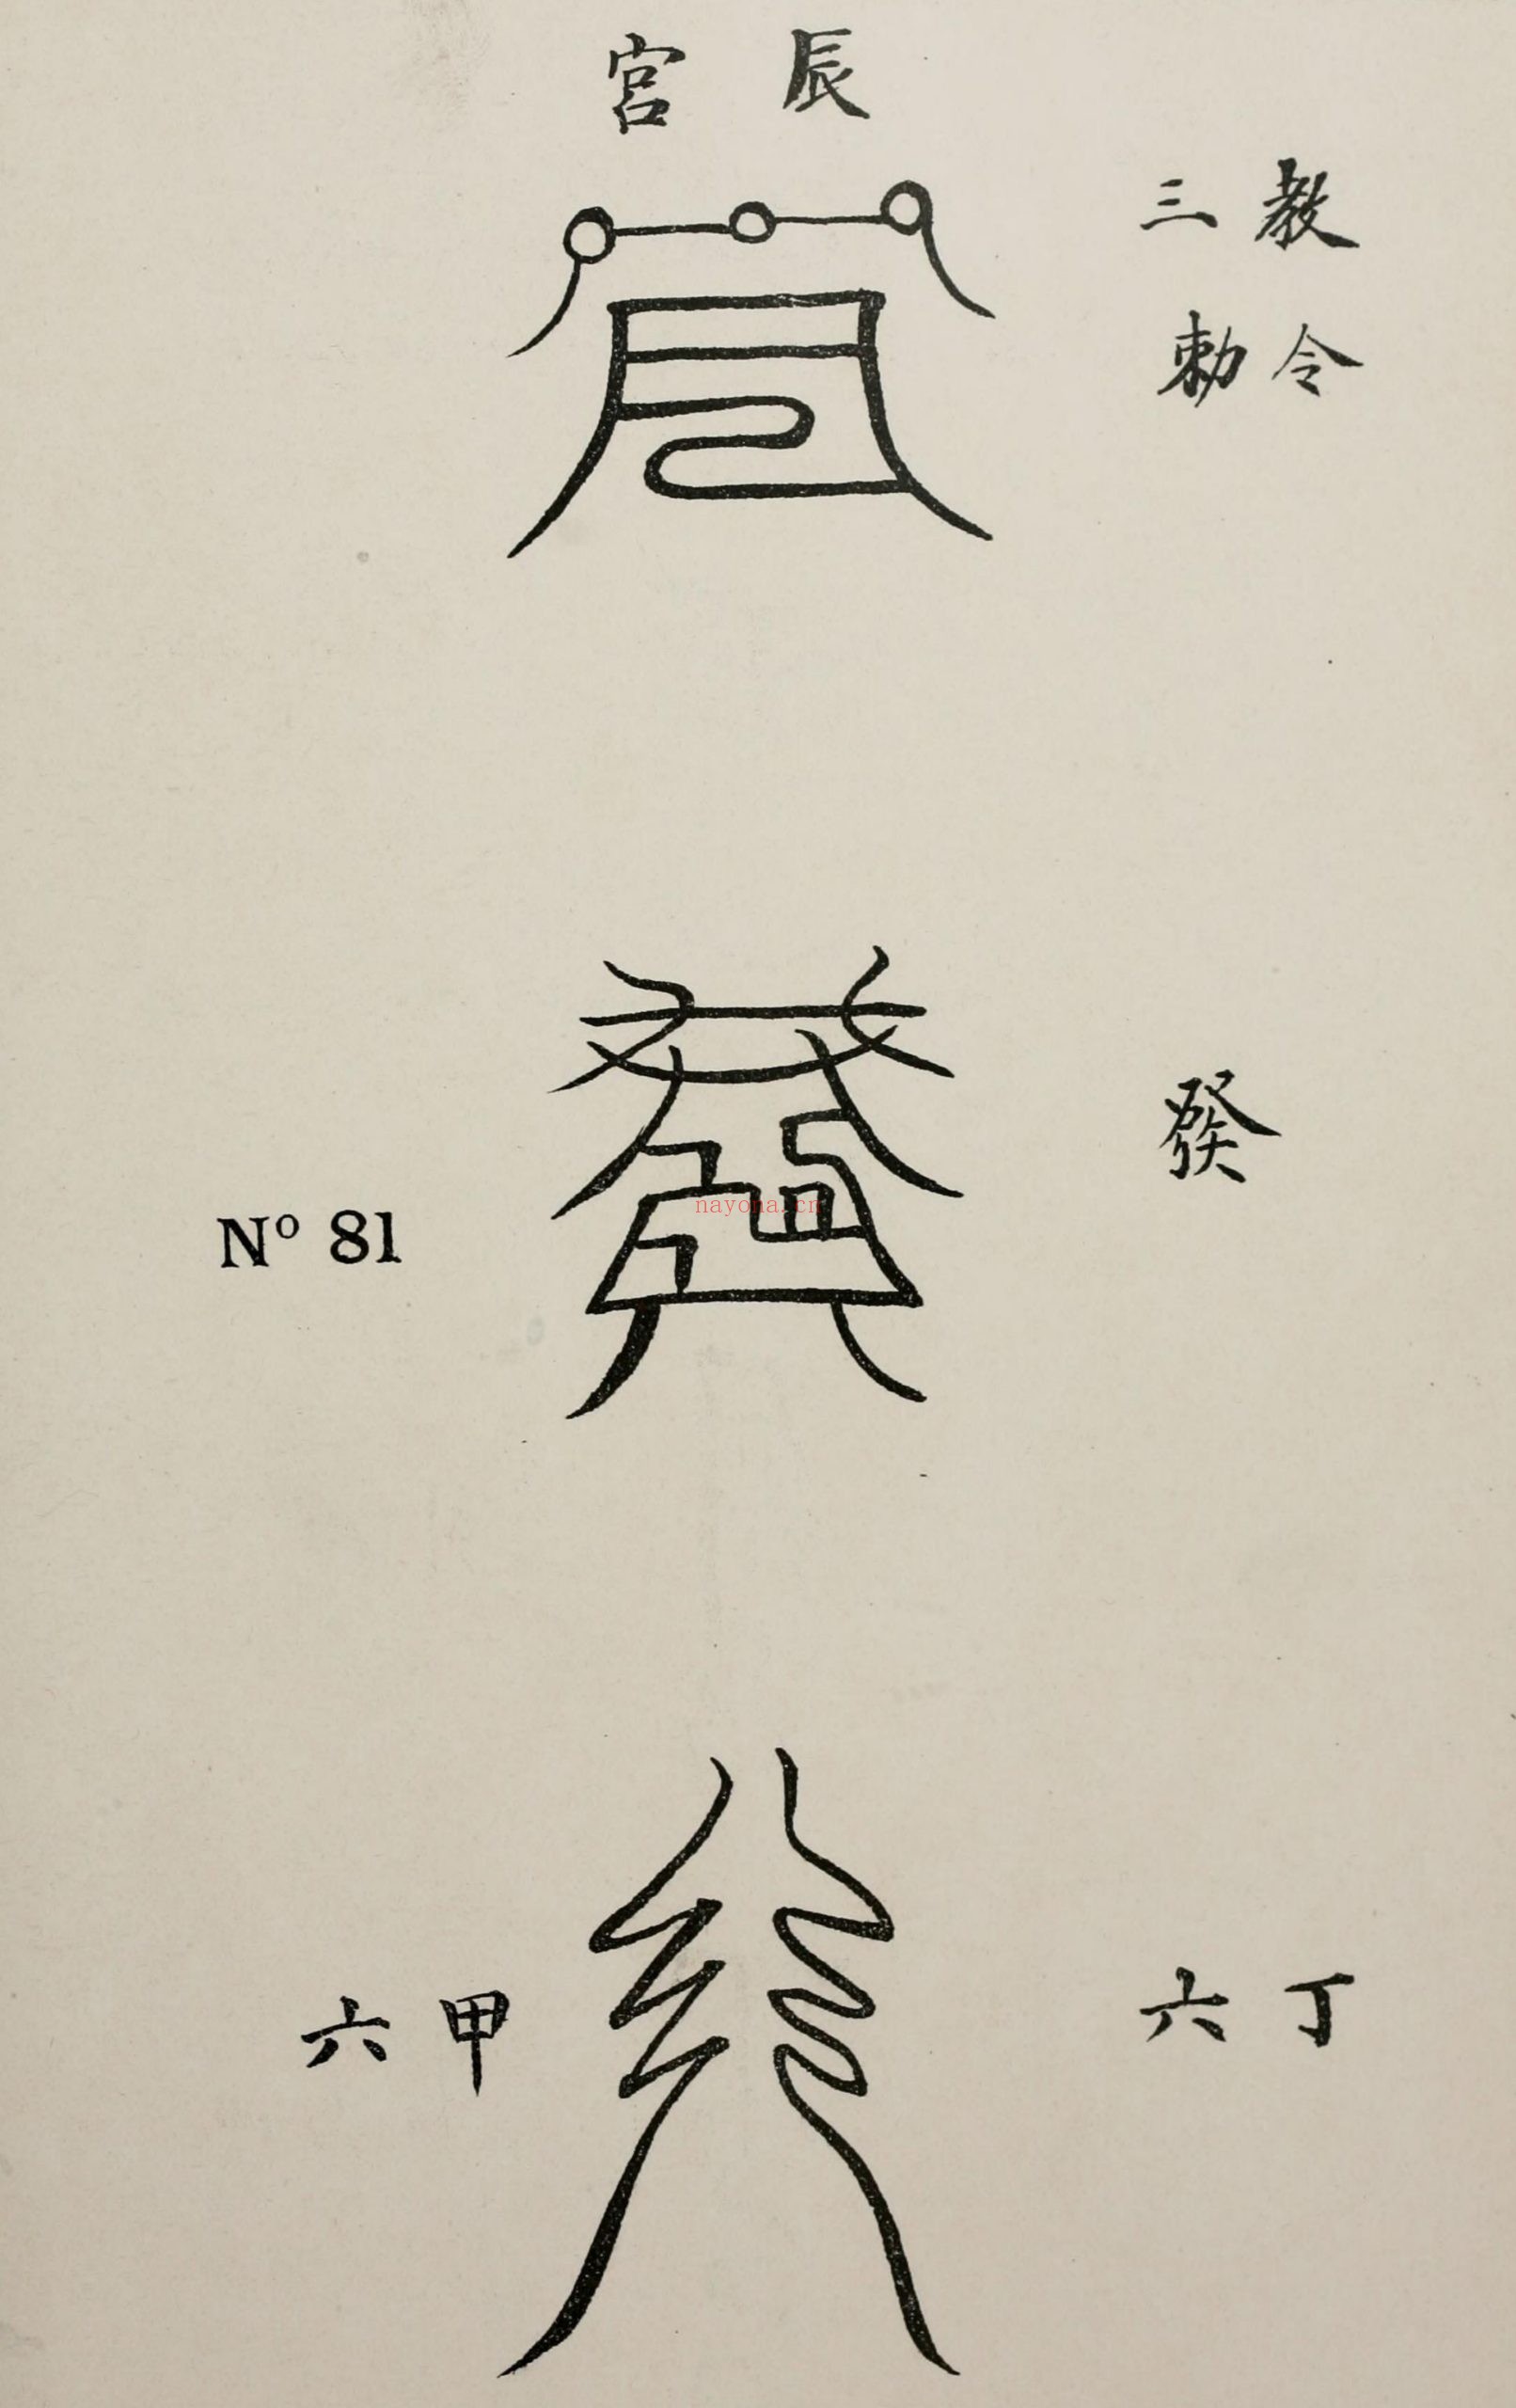 宮 辰
三 教
勅 令
發
nayona.cn
Nº 81
六 甲
六 丁